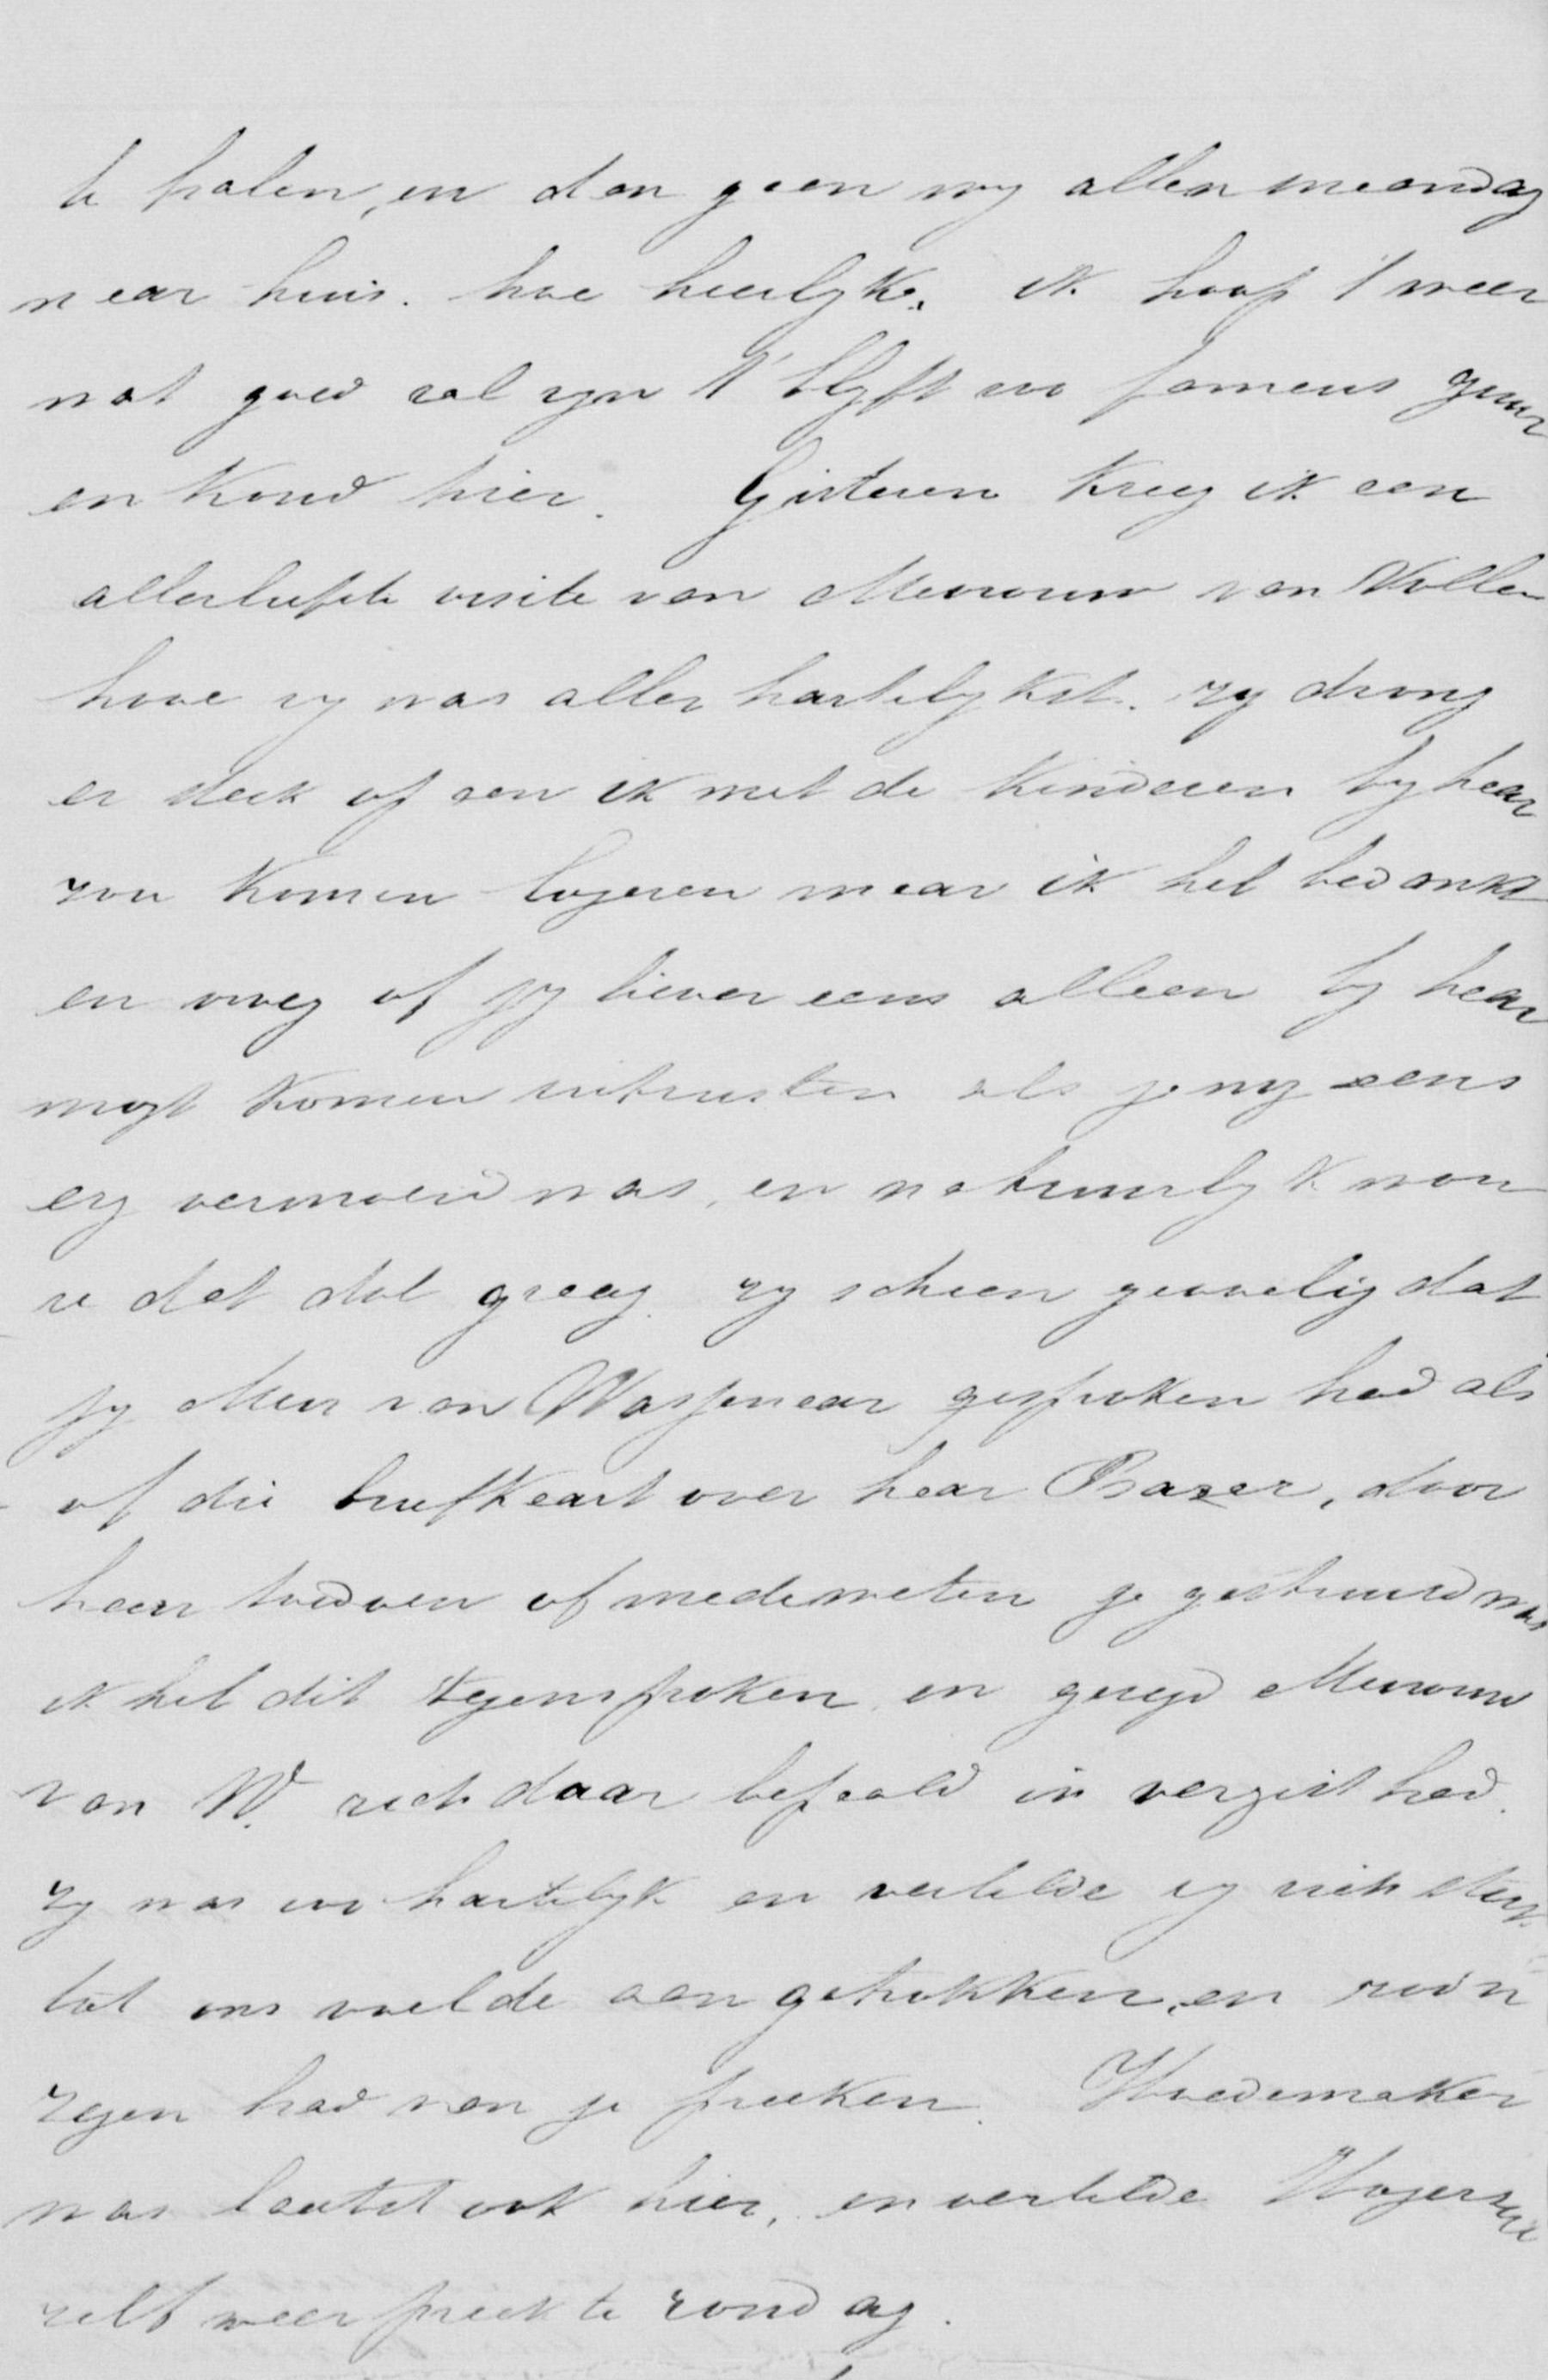 te halen, en dan gaan wy allen maandag
naar huis. hoe heerlyk. ik hoop 't weer
wat goed zal zyn 't blyft zoo fameus guur
en koud hier. Gisteren kreeg ik een
allerliefste visite van Mevrouw van Vollen
hove zy was aller hartelykst. zy drong
er sterk op aan ik met de kinderen by haar
zou komen logeren maar ik heb bedankt
en vroeg of jy liever eens alleen by haar
mogt komen uitrusten als je nog eens
erg vermoeid was, en natuurlyk wou
ze dat dol graag. zy scheen gevoelig dat
jy Mevr van Wassenaar gesproken had als
of die briefkaart over haar Bazar, door
haar toedoen of medeweten je gestuurd was
ik heb dit tegensproken en gezegd Mevrouw
van W. zich daar bepaald in vergist had.
zy was zoo hartelyk en vertelde zy zich sterk
tot ons voelde aangetrokken, en zoo'n
zegen had van je preeken. Hoedemaker
was laatst ook hier, en vertelde Hogerzeil
zelf weer preekte zondag.